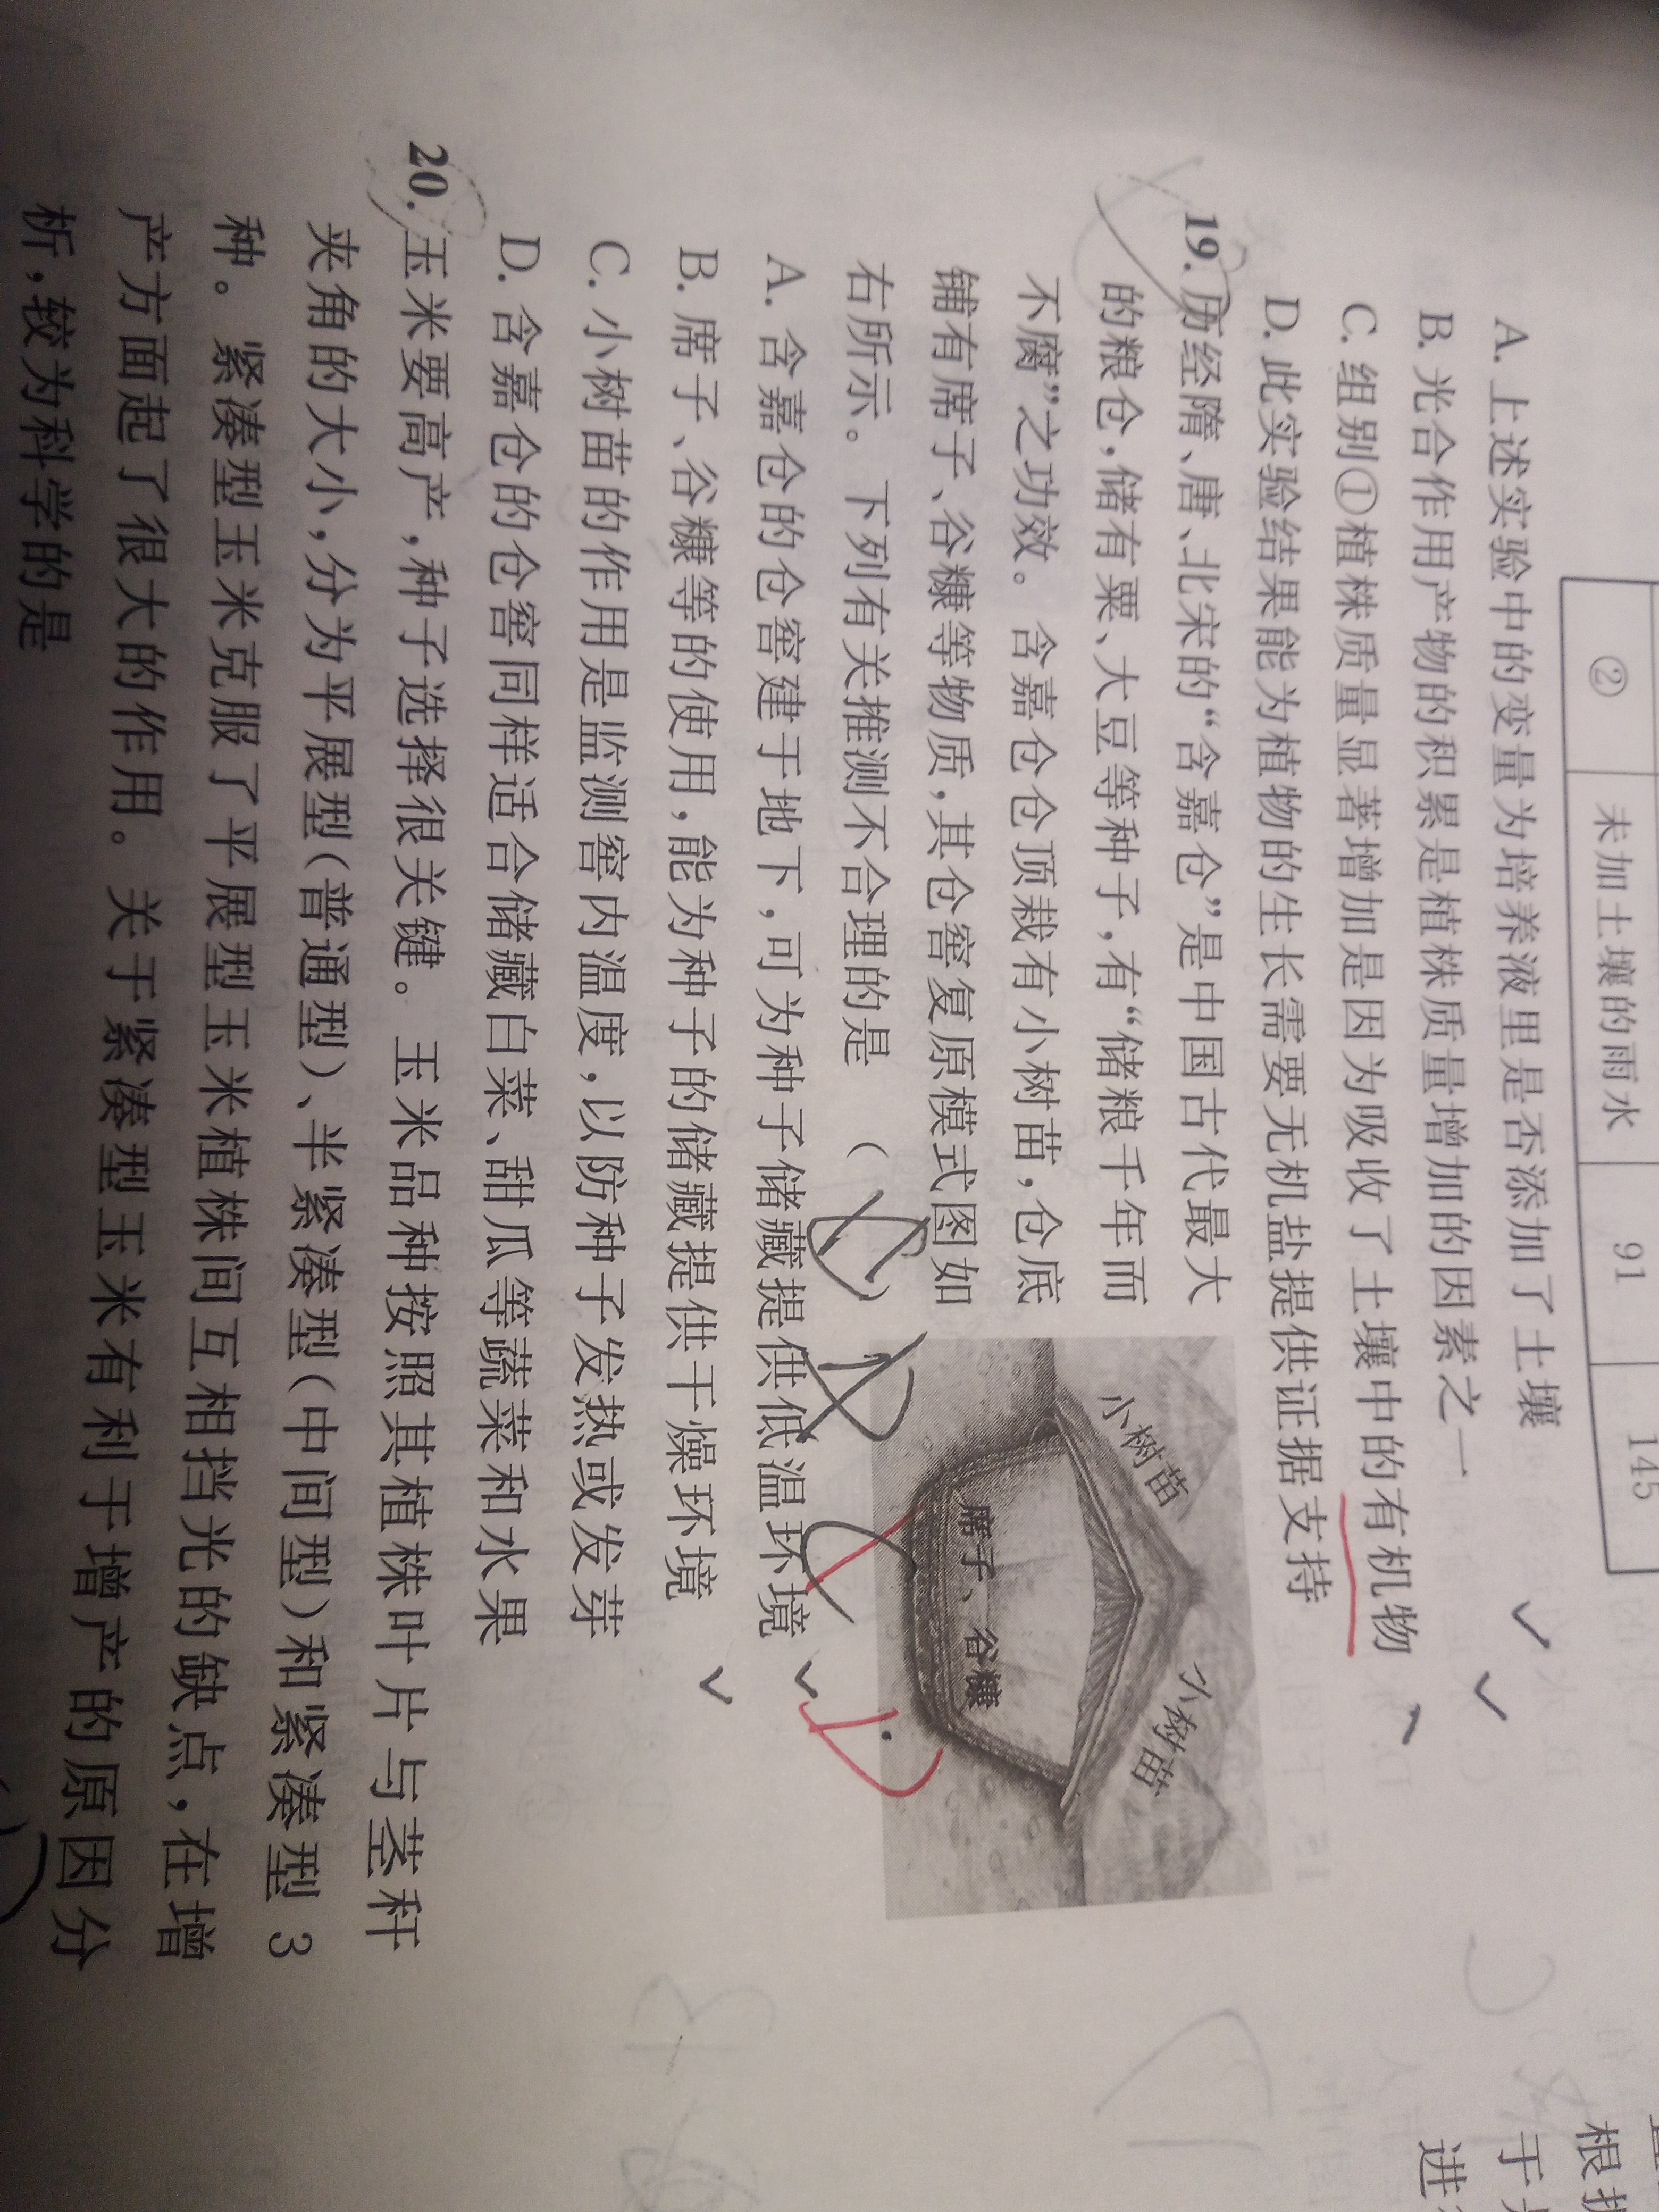 ② 未加土壤的雨水 91 145
A. 上述实验中的变量为培养液里是否添加了土壤
B. 光合作用产物的积累是植株质量增加的因素之一
C. 组别①植株质量显著增加是因为吸收了土壤中的有机物
D. 此实验结果能为植物的生长需要无机盐提供证据支持
19. 历经隋、唐、北宋的“含嘉仓”是中国古代最大
的粮仓,储有粟、大豆等种子,有“储粮千年而
不腐”之功效。含嘉仓仓顶栽有小树苗,仓底
铺有席子、谷糠等物质,其仓窖复原模式图如
右所示。下列有关推测不合理的是 ( )
小树苗
小树苗
席子、谷糠
D
A. 含嘉仓的仓窖建于地下,可为种子储藏提供低温环境
B. 席子、谷糠等的使用,能为种子的储藏提供干燥环境
C. 小树苗的作用是监测窖内温度,以防种子发热或发芽
D. 含嘉仓的仓窖同样适合储藏白菜、甜瓜等蔬菜和水果
20. 玉米要高产,种子选择很关键。玉米品种按照其植株叶片与茎秆
夹角的大小,分为平展型(普通型)、半紧凑型(中间型)和紧凑型 3
种。紧凑型玉米克服了平展型玉米植株间互相挡光的缺点,在增
产方面起了很大的作用。关于紧凑型玉米有利于增产的原因分
析,较为科学的是
根据
于
进